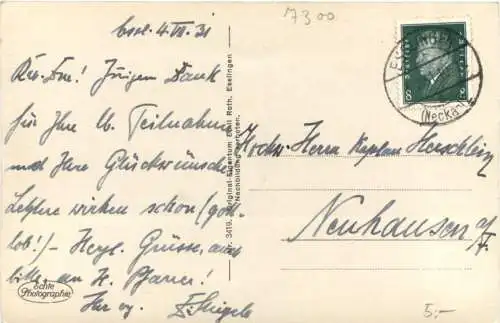 Essl. 4.VII.31
7300
ESSLINGEN
(Neckar)
8 8
Innigen Dank
für Ihre lb. Teilnahme
und Ihre Glückwünsche!
Letztere wirken schon (gott-
lob!) - Herzl. Grüsse, auch
bitte, an H. Pfarrer!
Ihr
Nr. 3419. Original-Eigentum Emil Roth, Esslingen
Nachbildung verboten.
echte
Photographie
Hochw. Herrn Kaplan
Neuhausen a/F.
5:-